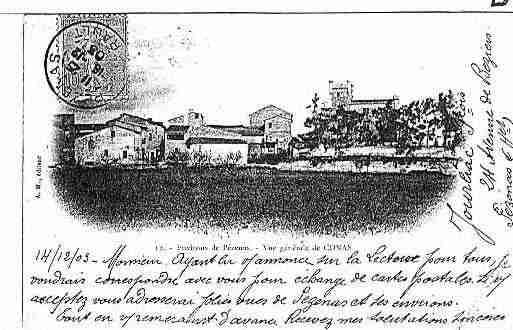 12. - Environs de Pézenas. - Vue générale de CONAS
A. M., Editeur
14/12/03 - Monsieur Ayant lu l'annonce sur la Lecture pour tous, je
voudrais correspondre avec vous pour échange de cartes postales. Si v/
acceptez vous adresserai jolies vues de Pezenas et ses environs.
Tout en v/ remerciant d'avance Recevez mes salutations sincères
21 Avenue de Béziers
Pézenas